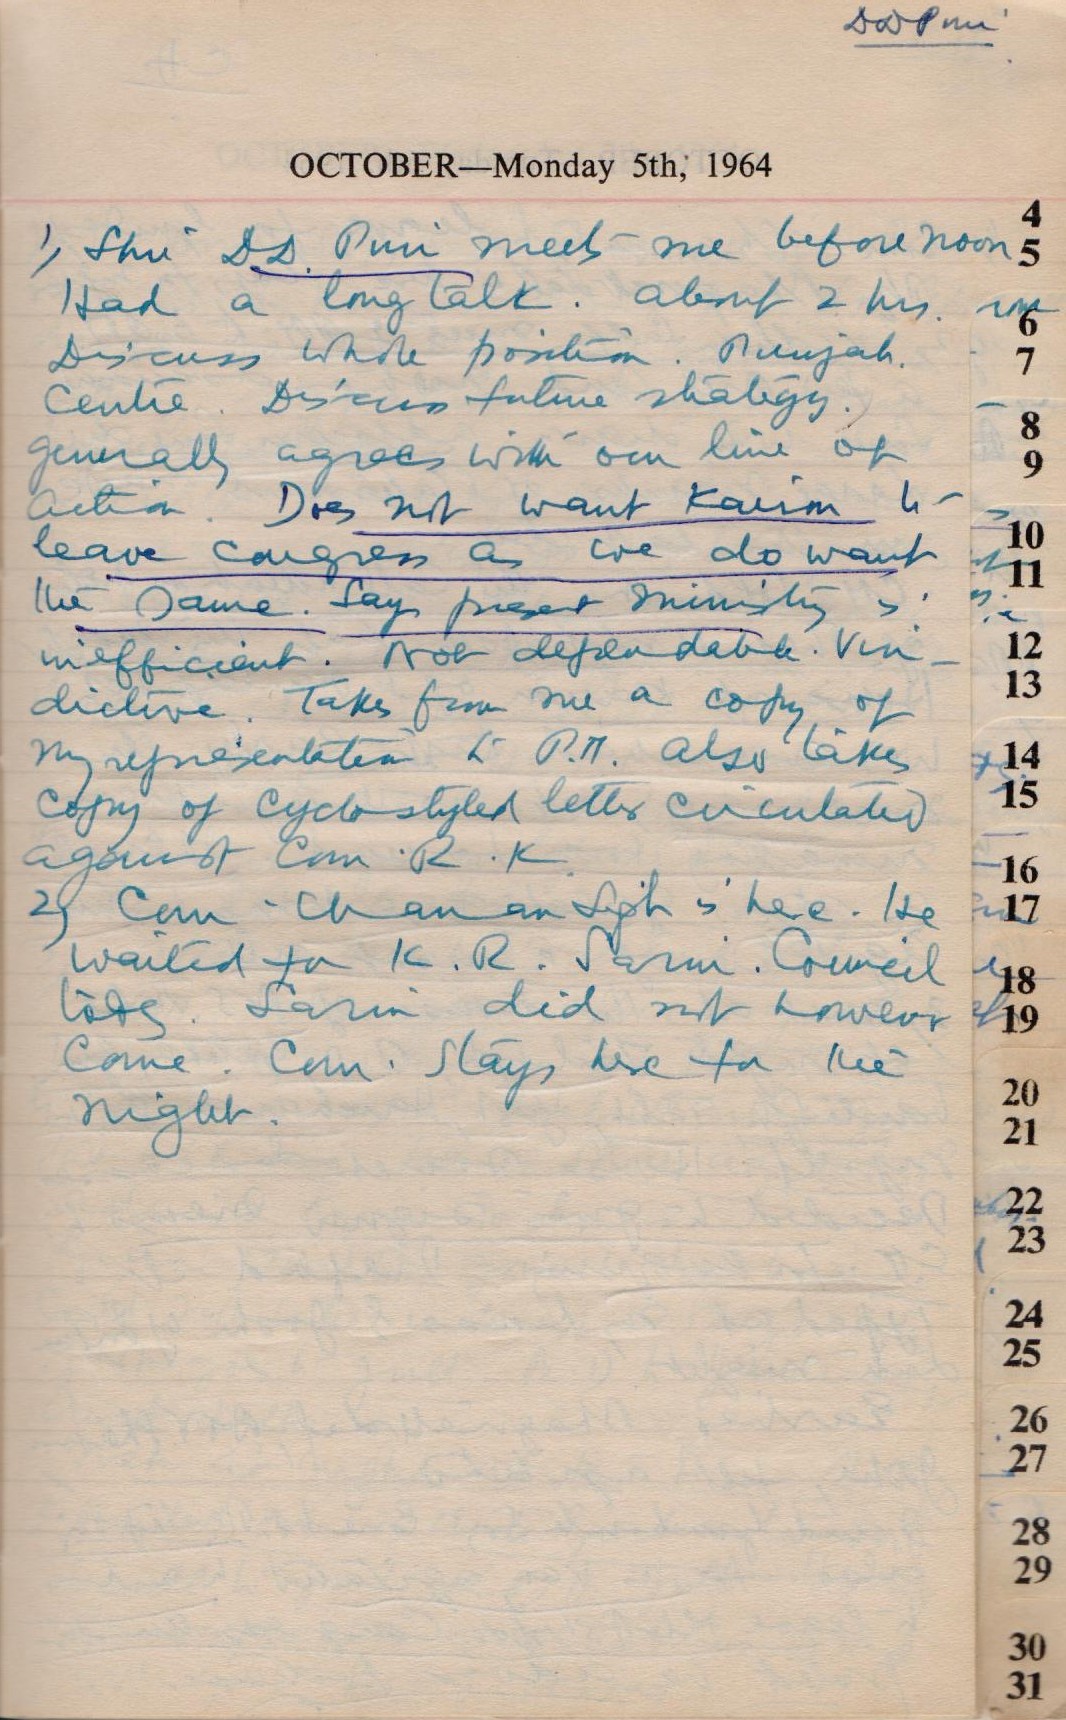 DD Puri
OCTOBER—Monday 5th, 1964
1) Shri DD. Puri meets me before noon
Had a long talk. About 2 hrs.
Discuss whole position. Punjab.
Centre. Discuss future strategy.
Generally agrees with our line of
action. Does not want Kairon to
leave Congress as we do want
the same. Says present Ministry is
inefficient. Not dependable. Vin-
dictive. Takes from me a copy of
my representation to P.M. Also takes
copy of cyclostyled letter circulated
against Com. R. K.
2) Com. Chanan Singh is here. He
waited for K. R. Sarin. Council
today. Sarin did not however
come. Com. stays here for the
night.
4
5
6
7
8
9
10
11
12
13
14
15
16
17
18
19
20
21
22
23
24
25
26
27
28
29
30
31